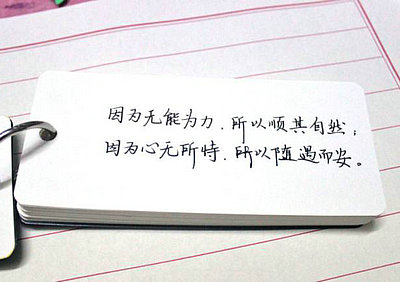 因为无能为力.所以顺其自然；
因为心无所恃.所以随遇而安。